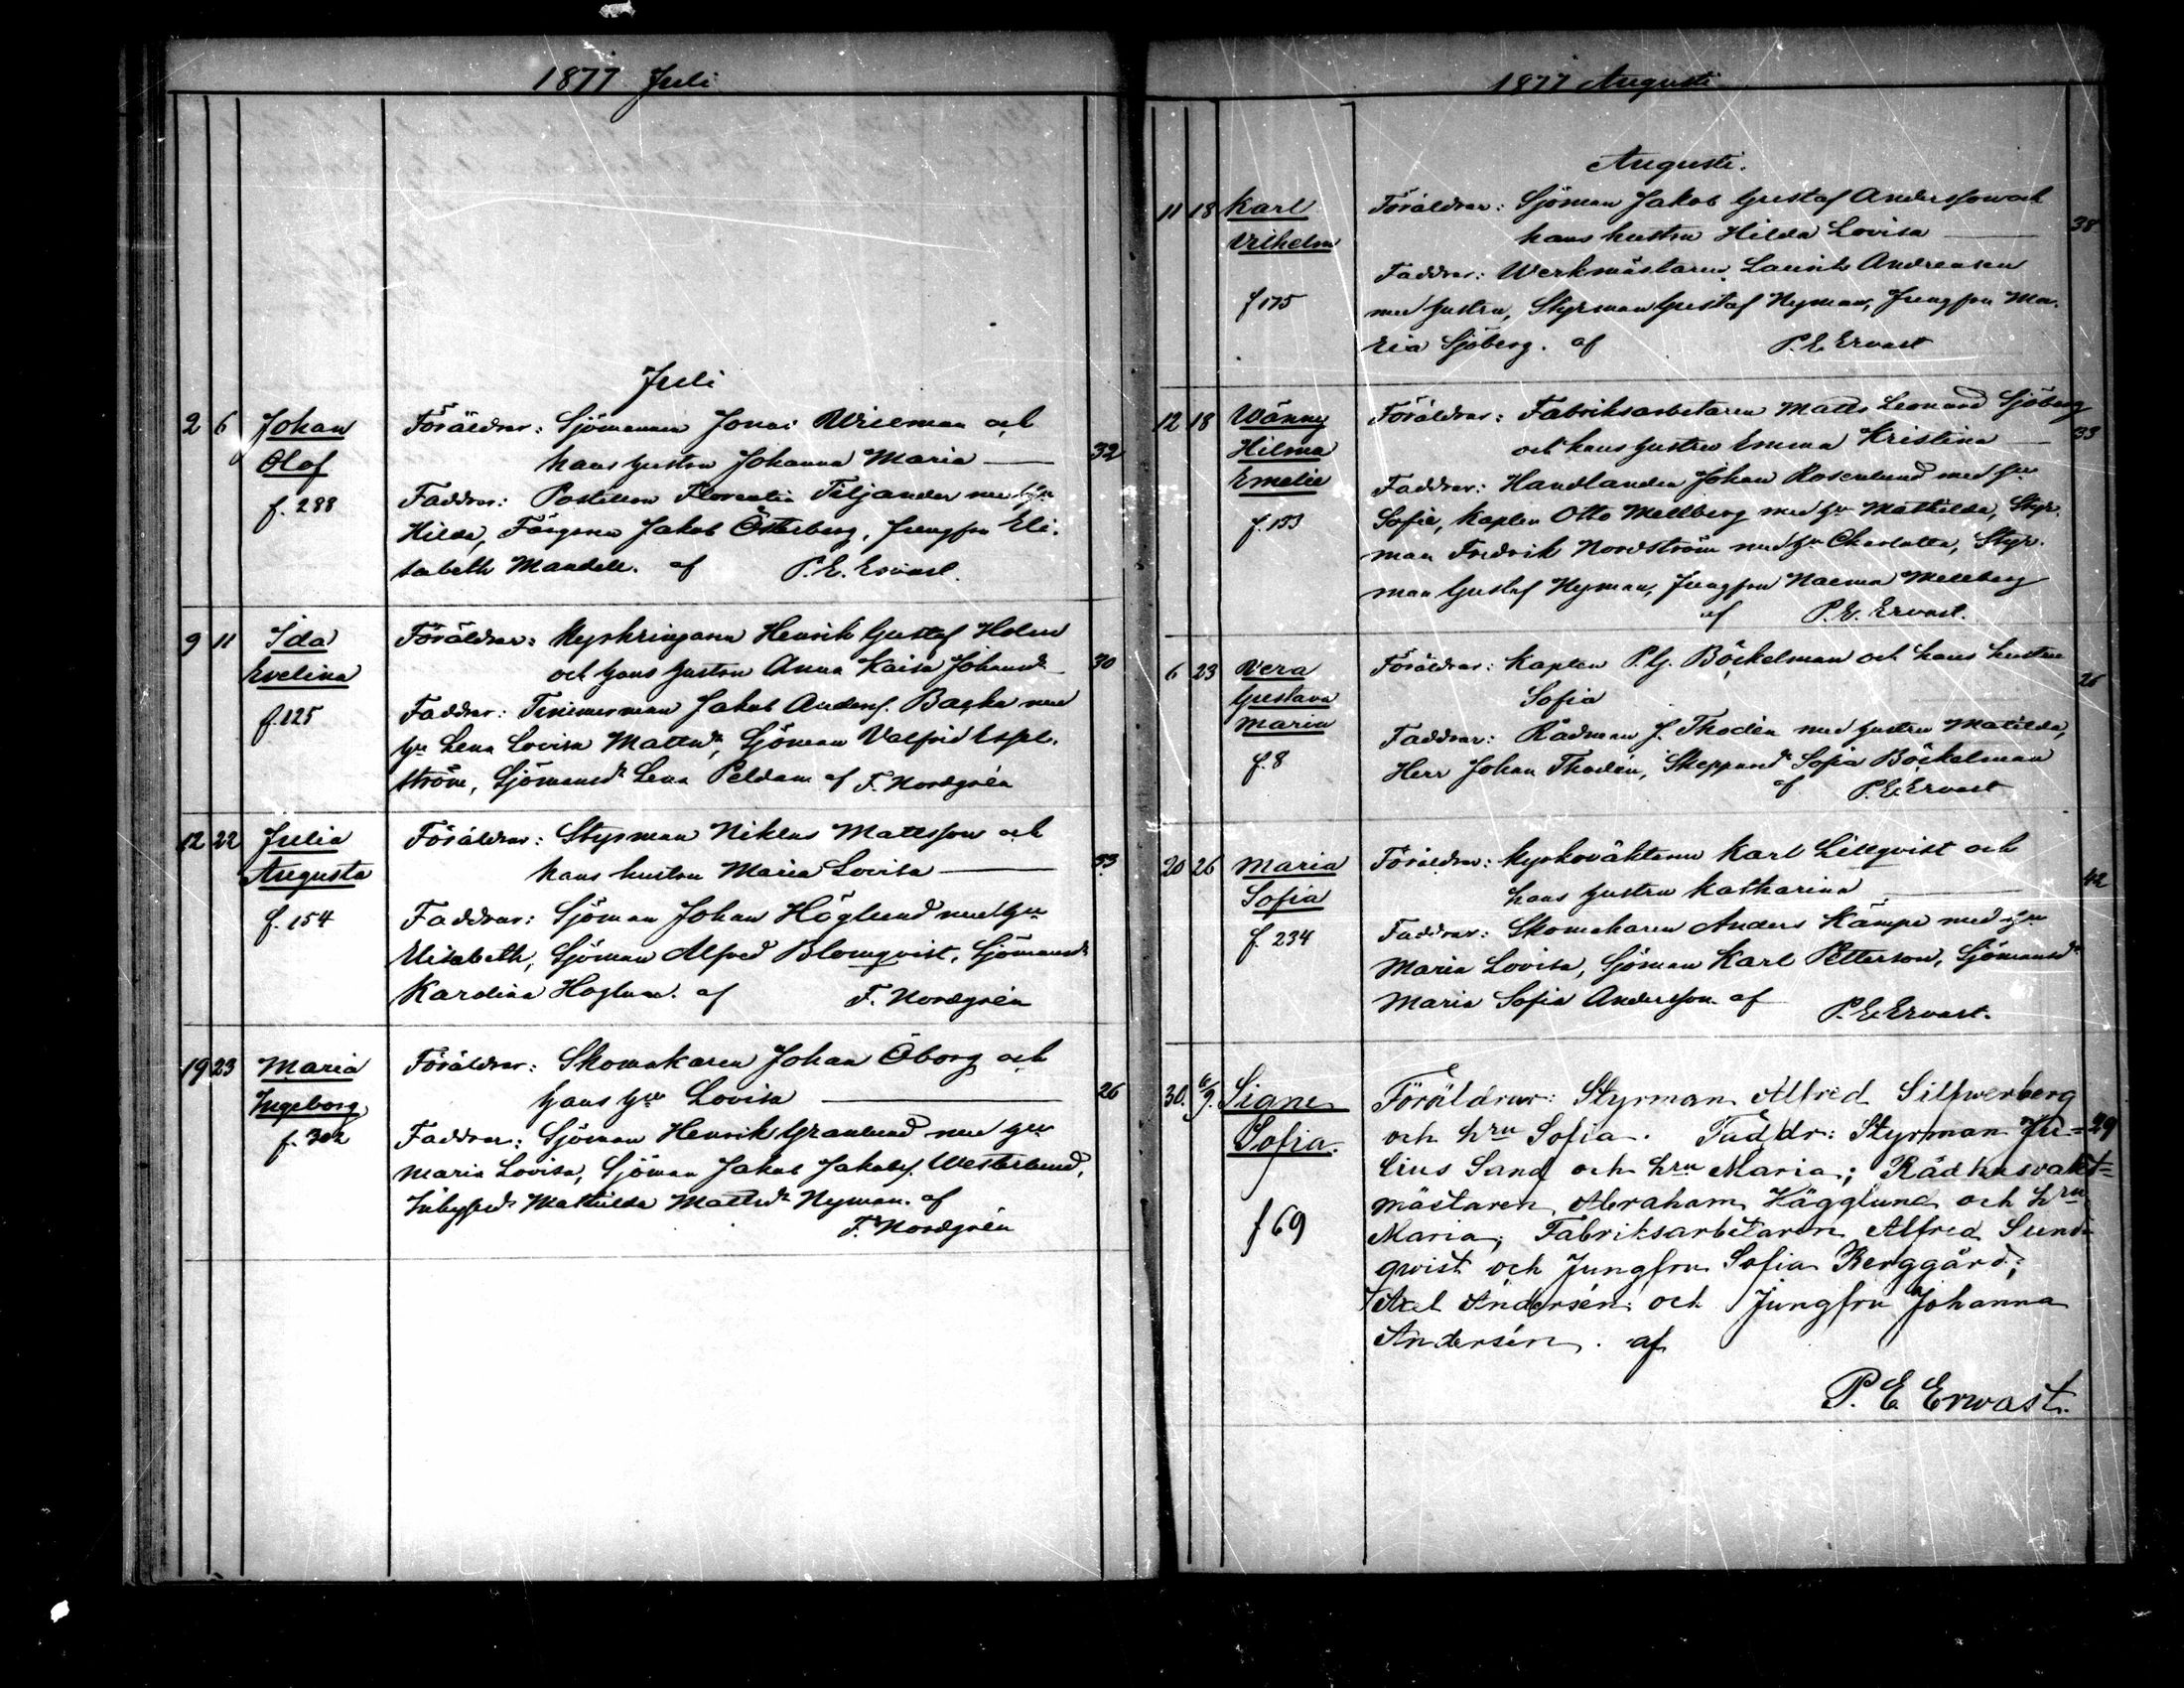 1877 Juli
Juli
2 6 Johan Föräldrar: Sjömannen Jonas Wiseman och
Olof hans hustru Johanna Maria — 32
f. 288 Faddrar: Postiljon Florentin Tiljander med Hu
Hilda, Färgaren Jakob Österberg, Jungfru Eli-
sabeth Mandell. af P. E. Ervast.
9 11 Ida Föräldrar: Kyrkringaren Henrik Gustaf Holm
Evelina och hans hustru Anna Kaisa Johansdr 30
f. 125 Faddrar: Timmerman Jakob Anderss. Backa med
Hu Lena Lovisa Mattsdr, Sjöman Valfrid
ström, Sjömansdr Lena Peldam af F. Nordgrén
12 22 Julia Föräldrar: Styrman Niklas Mattsson och
Augusta hans hustru Maria Lovisa — 33
f. 154 Faddrar: Sjöman Johan Höglund med Hu
Elisabeth, Sjöman Alfred Blomqvist, Sjömansdr
Karolina Höglund. af F. Nordgrén
19 23 Maria Föräldrar: Skomakaren Johan Öborg och
Ingeborg hans Hu Lovisa — 26
f. 302 Faddrar: Sjöman Henrik Granlund med Hu
Maria Lovisa, Sjöman Jakob Jakobs. Westerlund,
Mathilda Mattsdr Nyman. af
F. Nordgrén
1877 Augusti
Augusti.
11 18 Karl Föräldrar: Sjöman Jakob Gustaf Andersson och
Vilhelm hans hustru Hilda Lovisa — 38
Faddrar: Werkmästaren Laurits Andreasen
f 175 med hustru, Styrman Gustaf Nyman, Jungfru Ma-
ria Sjöberg. af P. E. Ervast
12 18 Wänny Föräldrar: Fabriksarbetaren Matts Leonard Sjöberg
Hilma och hans hustru Emma Kristina — 33
Emelie Faddrar: Handlanden Johan Rosenlund med Hu
Sofie, Kapten Otto Mellberg med Hu Mathilda, Styr-
f. 153 man Fredrik Nordström med Hu Charlotta, Styr-
man Gustaf Nyman, Jungfru Naema Mellberg
af P. E. Ervast.
6 23 Vera Föräldrar: Kapten P. G. Böckelman och hans hustru
Gustava Sofia 25
Maria Faddrar: Rådman J. Thodén med hustru Matilda,
f. 8 Herr Johan Thodén, Skeppardr Sofia Böckelman
af P. E. Ervast
20 26 Maria Föräldrar: Kyrkoväktaren Karl Lillqvist och
Sofia hans hustru Katharina — 42
f. 234 Faddrar: Skomakaren Anders Kämpe med Hu
Maria Lovisa, Sjöman Karl Petterson, Sjömansdr
Maria Sofia Andersson af P. E. Ervast.
30. 6/9. Signe Föräldrar: Styrman Alfred Silfwerberg
Sofia. och hru Sofia. Faddr: Styrman Ju- 29
lius Sand och hru Maria; Rådhusvakt-
mästaren Abraham Hägglund och hru
f 69 Maria; Fabriksarbetaren Alfred Sund-
qvist och Jungfru Sofia Berggård;
Axel Andersén och Jungfru Johanna
Andersén. af
P. E. Erwast.